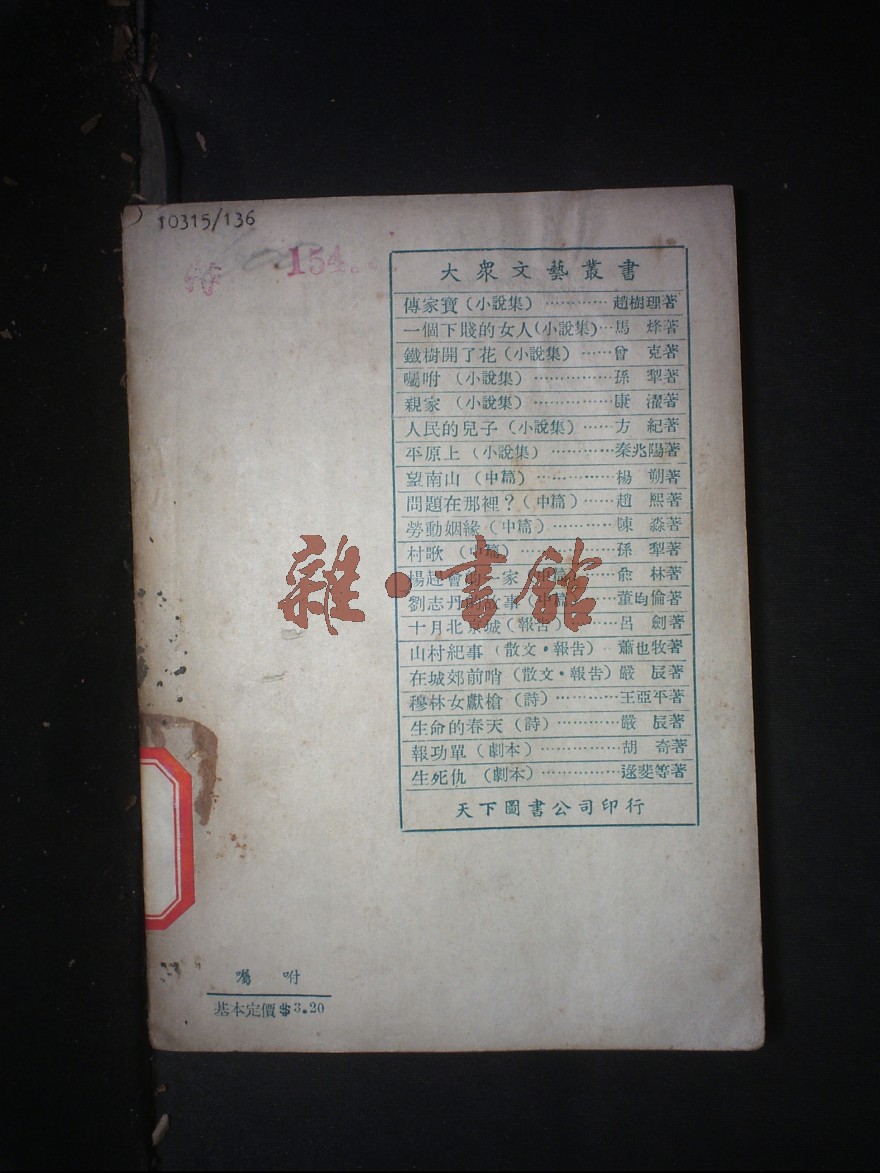 10315/136
154
大衆文藝叢書
傳家寶(小說集)…………趙樹理著
一個下賤的女人(小說集)…馬烽著
鐵樹開了花(小說集)……曾克著
囑咐(小說集)……………孫犁著
親家(小說集)……………康濯著
人民的兒子(小說集)……方紀著
平原上(小說集)…………秦兆陽著
望南山(中篇)……………楊朔著
問題在那裡?(中篇)……趙熙著
勞動姻緣(中篇)…………陳淼著
村歌(中篇)………………孫犁著
家 俞林著
劉志丹的故事(中篇)……董均倫著
十月北京城(報告)………呂劍著
山村紀事(散文·報告) 蕭也牧著
在城郊前哨(散文·報告)嚴辰著
穆林女獻槍(詩)…………王亞平著
生命的春天(詩)…………嚴辰著
報功單(劇本)……………胡奇著
生死仇(劇本)……………逯斐等著
天下圖書公司印行
雜·書館
囑咐
基本定價$3.20